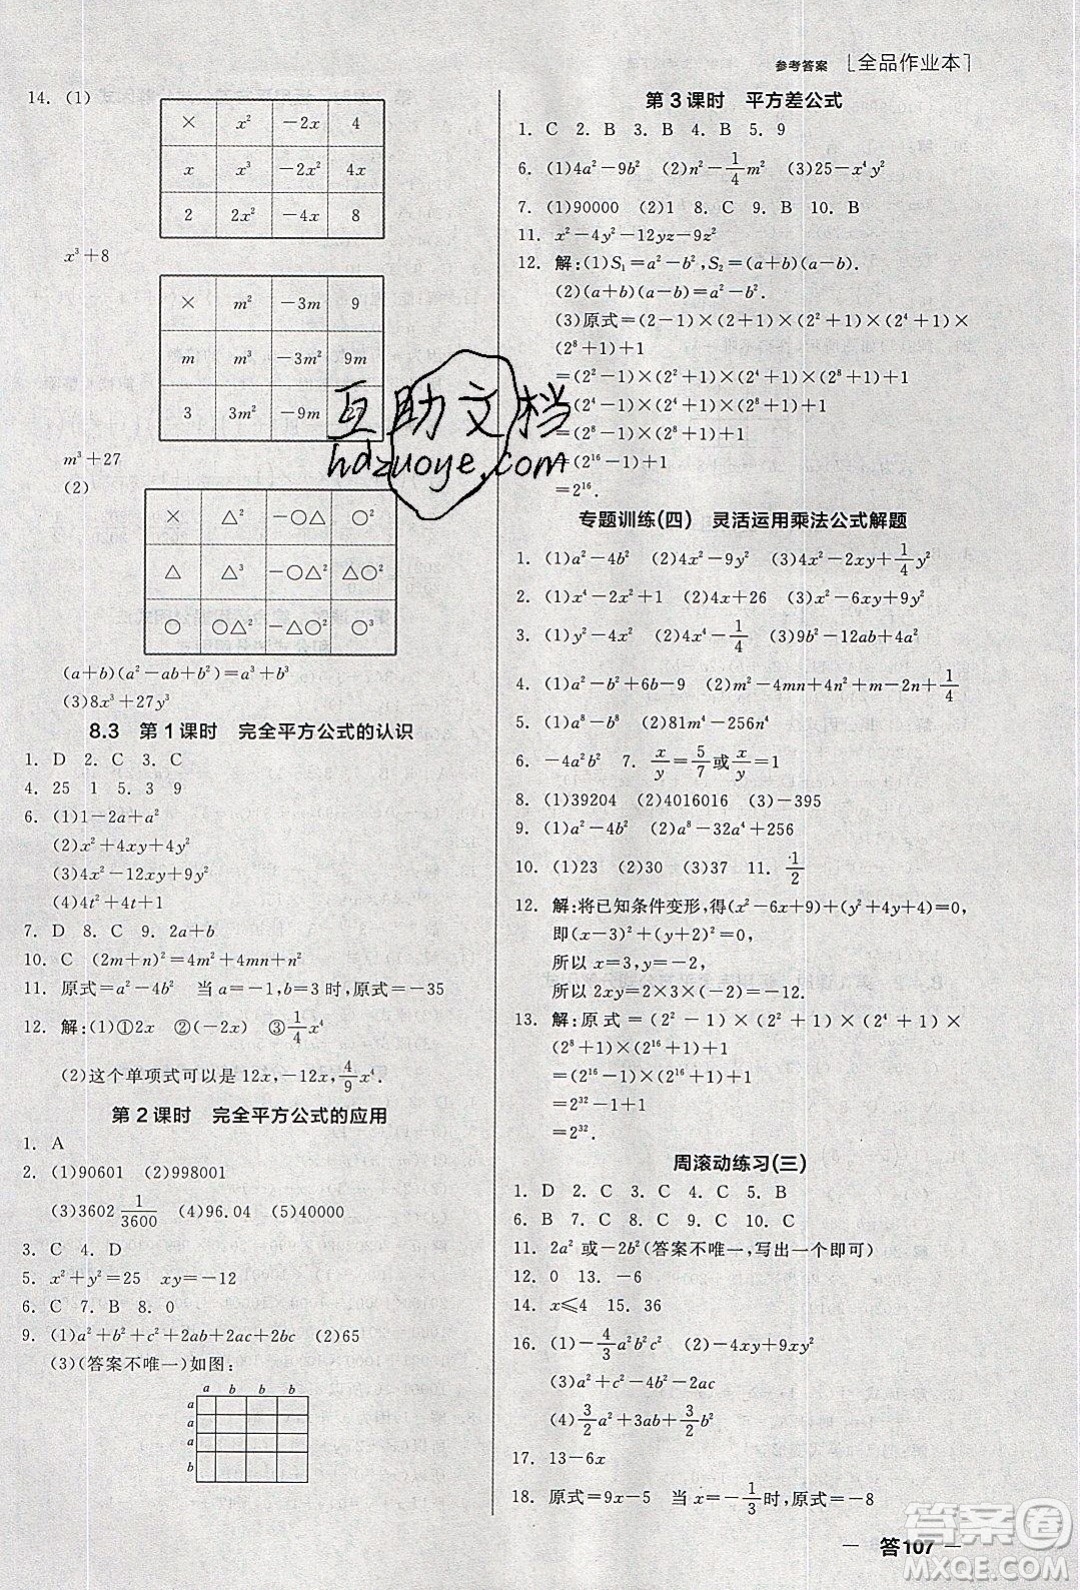 参考答案 [全品作业本]
14. (1)
× x² -2x 4
x x³ -2x² 4x
2 2x² -4x 8
x³+8
× m² -3m 9
m m³ -3m² 9m
3 3m² -9m 27
m³+27
(2)
× △² -○△ ○²
△ △³ -○△² △○²
○ ○△² -○²△ ○³
(a+b)(a²-ab+b²)=a³+b³
(3)8x³+27y³
8.3 第1课时 完全平方公式的认识
1. D 2. C 3. C
4. 25 1 5. 3 9
6. (1)1-2a+a²
(2)x²+4xy+4y²
(3)4x²-12xy+9y²
(4)4t²+4t+1
7. D 8. C 9. 2a+b
10. C (2m+n)²=4m²+4mn+n²
11. 原式=a²-4b² 当a=-1,b=3时,原式=-35
12. 解:(1)①2x ②(-2x) ③1/4x⁴
(2)这个单项式可以是12x,-12x,4/9x⁴.
第2课时 完全平方公式的应用
1. A
2. (1)90601 (2)998001
(3)3602 1/3600 (4)96.04 (5)40000
3. C 4. D
5. x²+y²=25 xy=-12
6. C 7. B 8. 0
9. (1)a²+b²+c²+2ab+2ac+2bc (2)65
(3)(答案不唯一)如图:
a b b b
a
a
a
b
第3课时 平方差公式
1. C 2. B 3. B 4. B 5. 9
6. (1)4a²-9b² (2)n²-1/4m² (3)25-x⁴y²
7. (1)90000 (2)1 8. C 9. B 10. B
11. x²-4y²-12yz-9z²
12. 解:(1)S₁=a²-b²,S₂=(a+b)(a-b).
(2)(a+b)(a-b)=a²-b².
(3)原式=(2-1)×(2+1)×(2²+1)×(2⁴+1)×
(2⁸+1)+1
=(2²-1)×(2²+1)×(2⁴+1)×(2⁸+1)+1
=(2⁴-1)×(2⁴+1)×(2⁸+1)+1
=(2⁸-1)×(2⁸+1)+1
=(2¹⁶-1)+1
=2¹⁶.
专题训练(四) 灵活运用乘法公式解题
1. (1)a²-4b² (2)4x²-9y² (3)4x²-2xy+1/4y²
2. (1)x⁴-2x²+1 (2)4x+26 (3)x²-6xy+9y²
3. (1)y²-4x² (2)4x⁴-1/4 (3)9b²-12ab+4a²
4. (1)a²-b²+6b-9 (2)m²-4mn+4n²-m+2n+1/4
5. (1)3a²-12b² (2)81m⁴-256n⁴
6. -4a²b² 7. x/y=5/7或x/y=1
8. (1)39204 (2)4016016 (3)-395
9. (1)a²-4b² (2)a⁸-32a⁴+256
10. (1)23 (2)30 (3)37 11. 1/2
12. 解:将已知条件变形,得(x²-6x+9)+(y²+4y+4)=0,
即(x-3)²+(y+2)²=0,
所以x=3,y=-2,
所以2xy=2×3×(-2)=-12.
13. 解:原式=(2²-1)×(2²+1)×(2⁴+1)×
(2⁸+1)×(2¹⁶+1)+1
=(2¹⁶-1)×(2¹⁶+1)+1
=2³²-1+1
=2³².
周滚动练习(三)
1. D 2. C 3. C 4. C 5. B
6. B 7. C 8. C 9. C 10. C
11. 2a²或-2b²(答案不唯一,写出一个即可)
12. 0 13. -6
14. x≤4 15. 36
16. (1)-4/3a²b²c² (2)-4xy+9y²
(3)a²+c²-4b²-2ac
(4)3/2a²+3ab+3/2b²
17. 13-6x
18. 原式=9x-5 当x=-1/3时,原式=-8
— 答107 —
互助文档
hdzuoye.com
答案卷
MXQE.COM